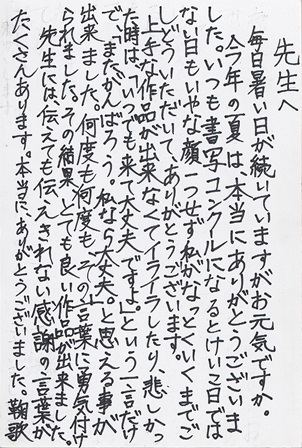 先生へ
毎日暑い日が続いていますがお元気ですか。
今年の夏は、本当にありがとうございま
した。いつも書写コンクールになるとけいこ日では
ない日もいやな顔一つせず私がなっとくいくまでご
しどういただいて、ありがとうございます。
上手な作品が出来なくてイライラしたり、悲しかっ
た時は、「いつでも来て大丈夫ですよ。」という一言だけ
で、「またがんばろう。私なら大丈夫。」と思える事が
出来ました。何度も何度も、その言葉に勇気付け
られました。その結果、とても良い作品が出来ました。
先生には、伝えても伝えきれない感謝の言葉が
たくさんあります。本当にありがとうございました。鞠歌